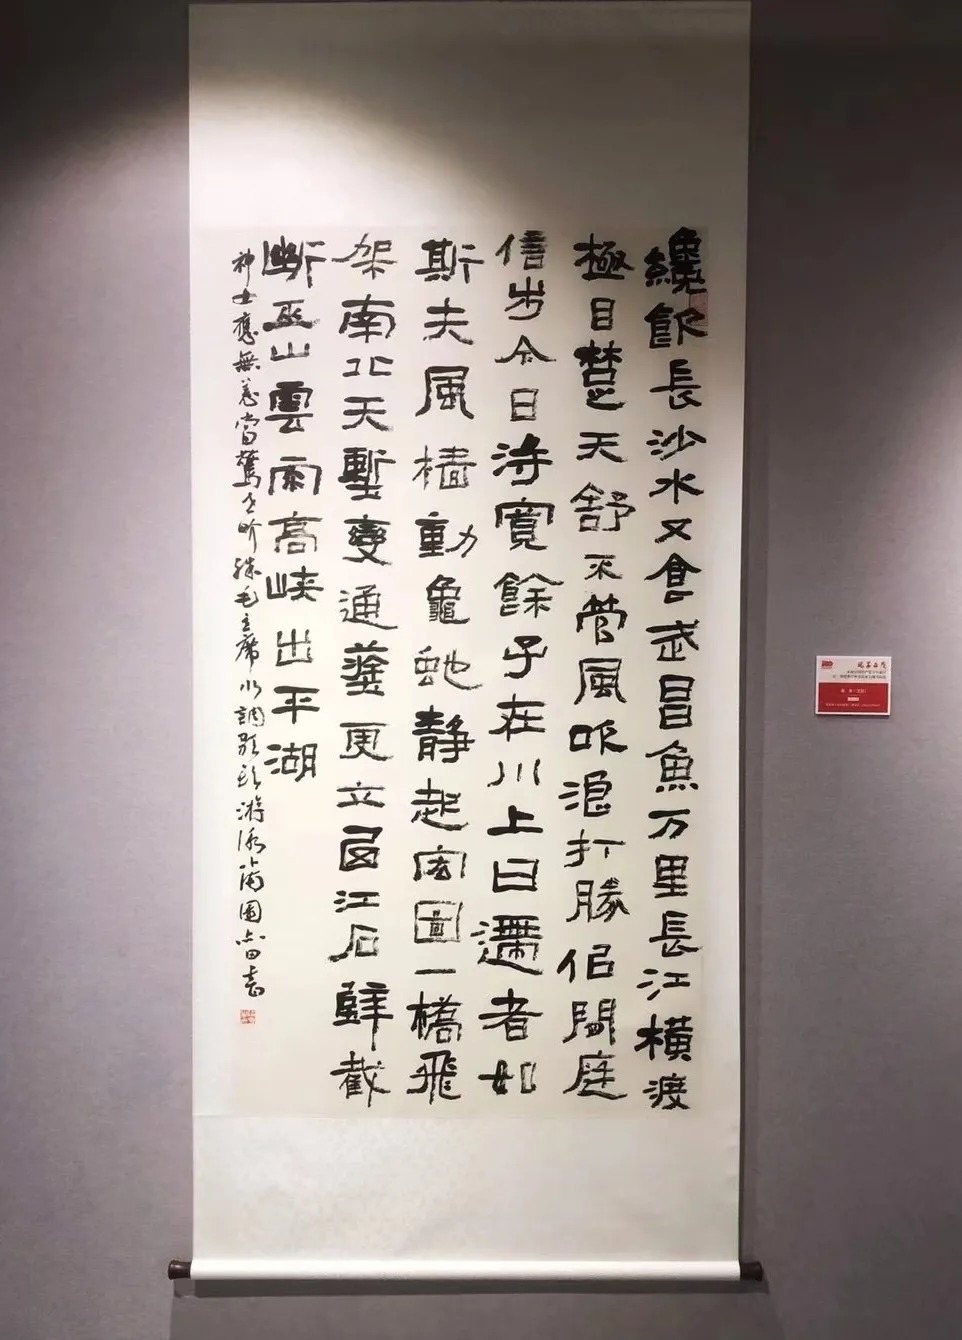 纔飲長沙水又食武昌魚万里長江橫渡
極目楚天舒不管風吹浪打勝佀閒庭
信步今日得寬餘子在川上曰逝者如
斯夫風檣動龜蛇靜起宏圖一橋飛
架南北天塹變通塗更立西江石壁截
斷巫山雲雨高峽出平湖
神女應無恙當驚世界殊毛主席水調歌頭游泳